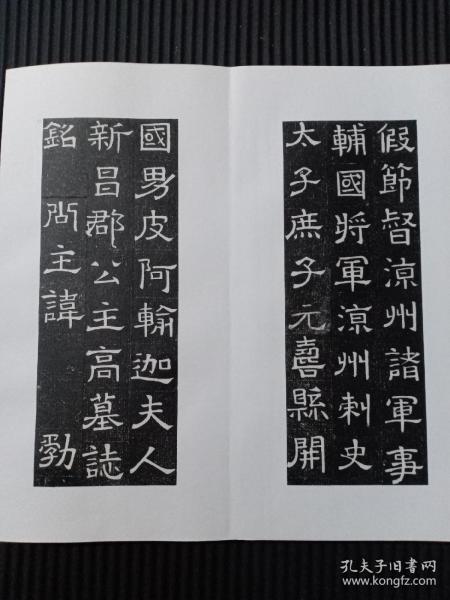 假節督涼州諸軍事
輔國將軍涼州刺史
太子庶子元壽縣開
國男皮阿輸迦夫人
新昌郡公主高墓誌
銘 公主諱 勃
孔夫子旧书网
www.kongfz.com